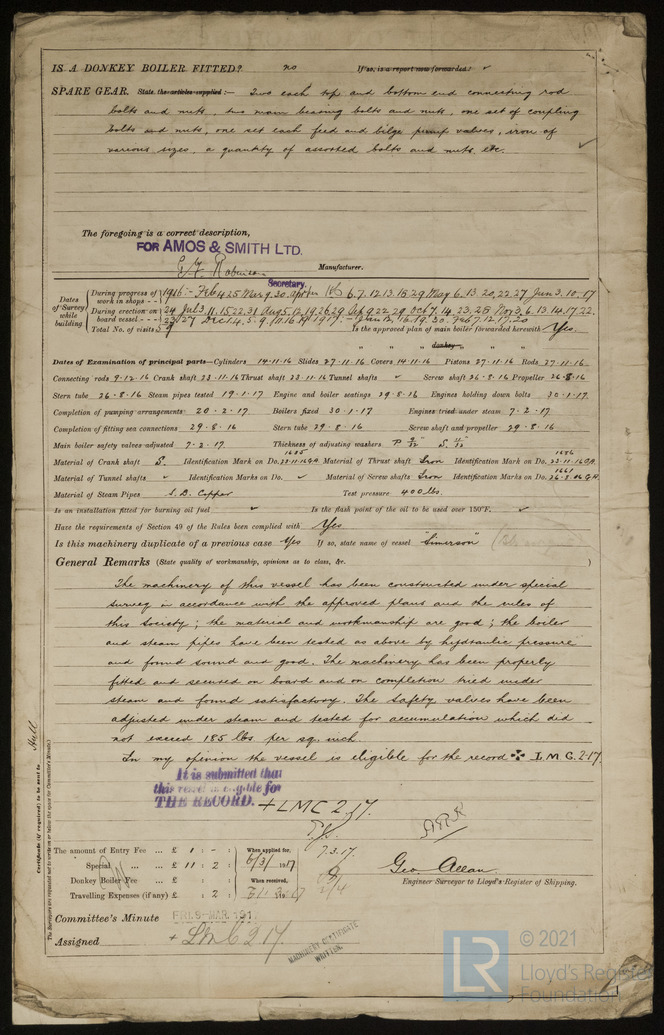 IS A DONKEY BOILER FITTED? no If so, is a report now forwarded? ✓
SPARE GEAR. State the articles supplied:— Two each top and bottom end connecting rod
bolts and nuts, two main bearing bolts and nuts, one set of coupling
bolts and nuts, one set each feed and bilge pump valves, iron of
various sizes, a quantity of assorted bolts and nuts etc.
The foregoing is a correct description,
FOR AMOS & SMITH LTD.
Robinson Manufacturer.
Secretary.
Dates of Survey while building
During progress of work in shops - - 1916:- Feb 4 25 Mar 9. 30 6. 7. 12. 13. 18 29 May 6. 13. 20, 22 27 Jun 3. 10. 17
During erection on board vessel - - - 24 Jul 3. 11. 15 22. 31 Aug 5. 12 19 26 29
Total No. of visits 39 Is the approved plan of main boiler forwarded herewith Yes.
" " donkey " " "
Dates of Examination of principal parts—Cylinders 14.11.16 Slides 27.11.16 Covers 14.11.16 Pistons 27.11.16 Rods 27.11.16
Connecting rods 9.12.16 Crank shaft 23.11.16 Thrust shaft 23.11.16 Tunnel shafts ✓ Screw shaft 26.8.16 Propeller 26.8.16
Stern tube 26.8.16 Steam pipes tested 19.1.17 Engine and boiler seatings 29.8.16 Engines holding down bolts 30.1.17.
Completion of pumping arrangements 20.2.17 Boilers fixed 30.1.17 Engines tried under steam 7.2.17
Completion of fitting sea connections 29.8.16 Stern tube 29.8.16 Screw shaft and propeller 29.8.16
Main boiler safety valves adjusted 7.2.17 Thickness of adjusting washers P S
Material of Crank shaft S. Identification Mark on Do. 23.11.16 G.A. Material of Thrust shaft Iron Identification Mark on Do. 23.11.16 G.A.
Material of Tunnel shafts ✓ Identification Marks on Do. ✓ Material of Screw shafts Iron Identification Marks on Do. 26.8.16 G.A.
Material of Steam Pipes S.D. Copper Test pressure 400 lbs.
Is an installation fitted for burning oil fuel ✓ Is the flash point of the oil to be used over 150°F. ✓
Have the requirements of Section 49 of the Rules been complied with Yes
Is this machinery duplicate of a previous case Yes If so, state name of vessel "Simerson"
General Remarks (State quality of workmanship, opinions as to class, &c.)
The machinery of this vessel has been constructed under special
survey in accordance with the approved plans and the rules of
this Society; the material and workmanship are good; the boiler
and steam pipes have been tested as above by hydraulic pressure
and found sound and good. The machinery has been properly
fitted and secured on board and on completion tried under
steam and found satisfactory. The Safety valves have been
adjusted under steam and tested for accumulation which did
not exceed 185 lbs. per sq. inch.
In my opinion the vessel is eligible for the record L.M.C. 2-17
It is submitted that
this vessel is eligible for
THE RECORD. + LMC 2.17.
7.3.17.
Certificate (if required) to be sent to Hull
The Surveyors are requested not to write on or below the space for Committee's Minute.
The amount of Entry Fee ... £ 1 : - When applied for,
Special ... £ 11 : 2 : 6/3/1917
Donkey Boiler Fee ... £ : : When received,
Travelling Expenses (if any) £ : 2 :
Geo. Allan
Engineer Surveyor to Lloyd's Register of Shipping.
Committee's Minute FRI. 9 - MAR. 191
Assigned + LMC 2.17.
MACHINERY CERTIFICATE
WRITTEN
LR
© 2021
Lloyd's Register
Foundation